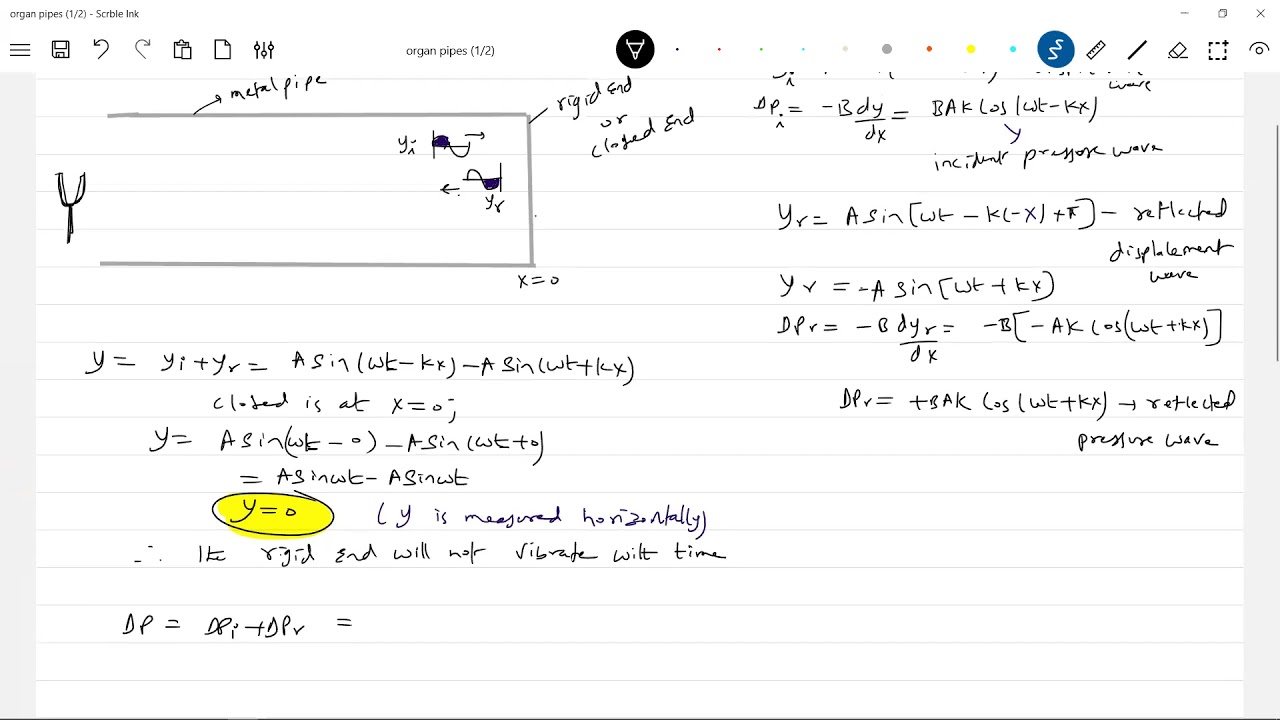 organ pipes (1/2) - Scrble Ink
organ pipes (1/2)
metal pipe
rigid end
or
closed end
yi
yr
x=0
wave
DPi = -B dy/dx = BAK Cos(wt-kx)
incident pressure wave
yr = A sin[wt - k(-x) + π] - reflected
displalement
wave
yr = -A sin[wt+kx)
DPr = -B dyr/dx = -B[-AK Cos(wt+kx)]
DPr = +BAK Cos(wt+kx) → reflected
pressure wave
y = yi+yr = A Sin(wt-kx) - A Sin(wt+kx)
closed is at x=0;
y = A sin(wt-0) - A sin(wt+0)
= A Sinwt - A Sinwt
y=0 (y is measured horizontally)
∴ The rigid end will not vibrate with time
DP = DPi+DPr =